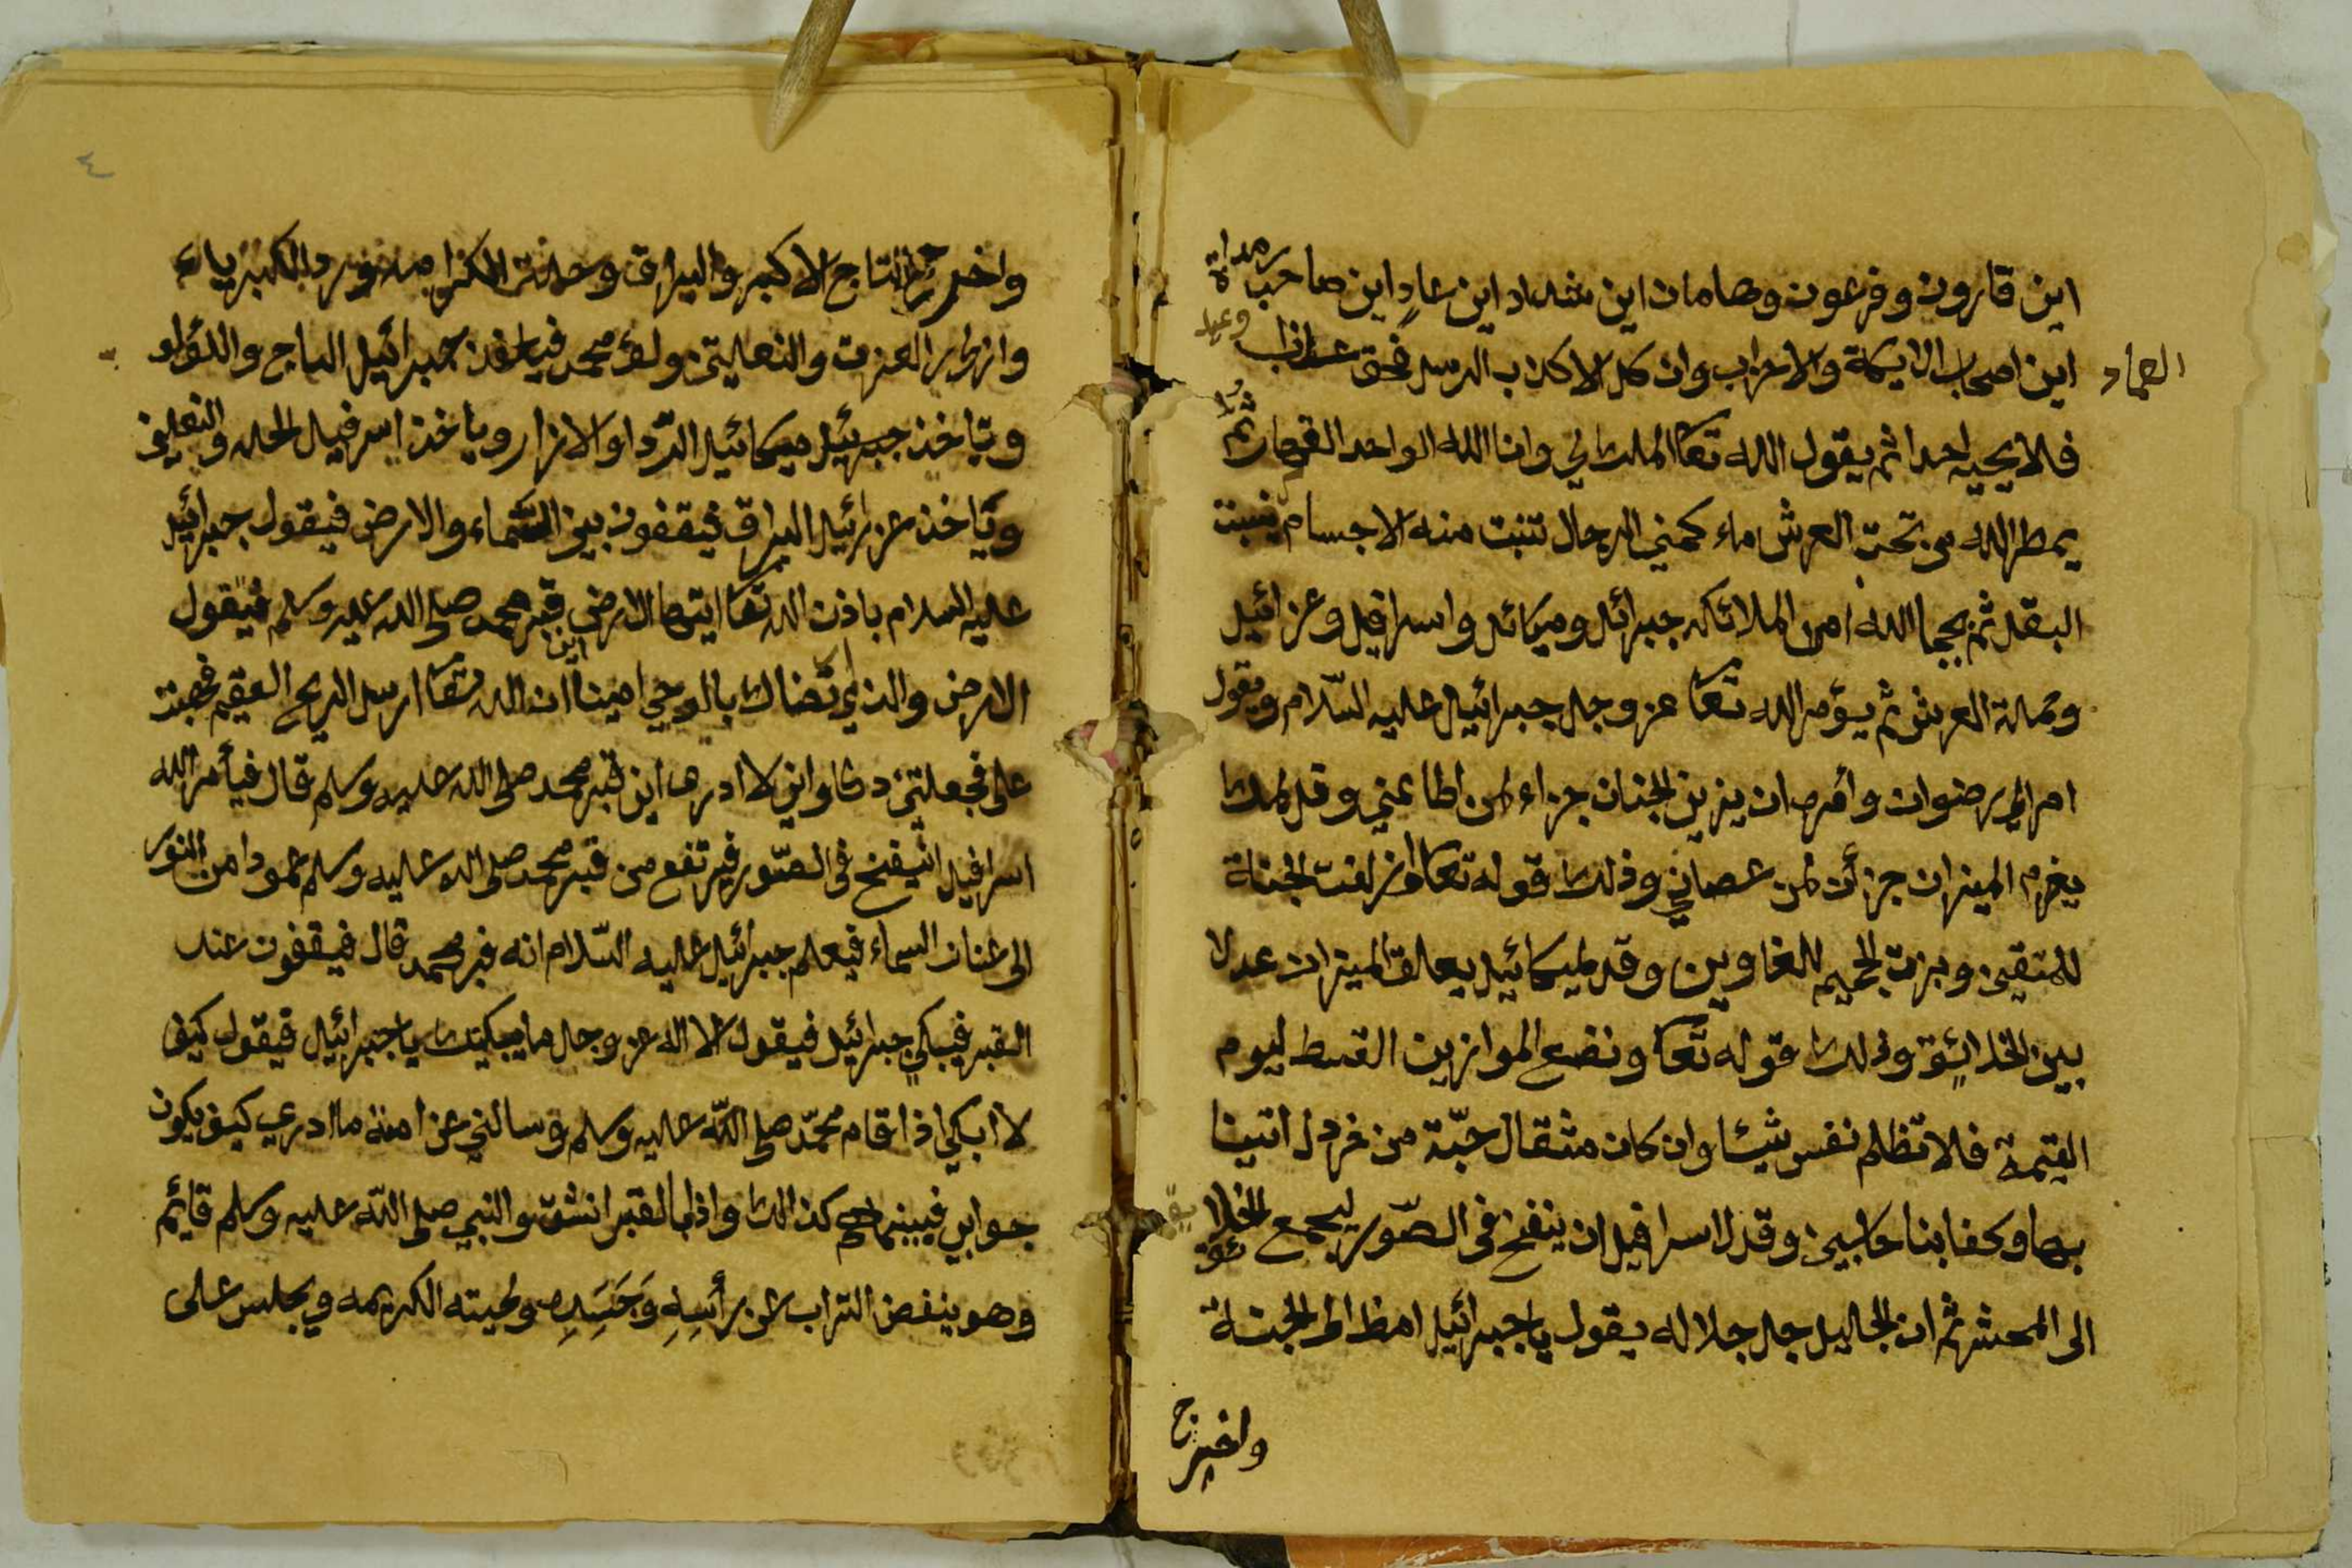 اين قارون وفرعون وهامان اين شداد اين عادٍ اين صاحب
العماد
اين اصحاب الايكة والاحزاب وان كل الا كذب الرسل فحق عذاب
وعيد
فلا يجيبه احدا ثم يقول الله تعا الملك لي وانا الله الواحد القهار ثم
يمطر الله من تحت العرش ماء كمني الرجال تنبت منه الاجسام
البقل ثم يحيا الله من الملائكه جبرائل وميكائل واسرافيل وعزرائيل
وحملة العرش ثم يؤمر الله تعا عز وجل جبرائيل عليه السّلام ويقول
امر الى رضوان وأمره ان يزين الجنان جزاء لمن اطاعني وقل لملك
الميزان جزائن لمن عصاني وذلك قوله تعا وازلفت الجناة
للمتقين وبرزت الجحيم للغاوين وقل لميكائيل يعلق الميزان عدلا
بين الخلائق وذلك قوله تعا ونضع الموازين القسط ليوم
القيمة فلا تظلم نفس شيئا وان كان مثقال حبّة من خردل اتينا
بها وكفا بنا حاسبين وقل لاسرافيل ان ينفخ في الصّور ليجمع الخلائق
الى المحشر ثم ان الجليل جل جلاله يقول يا جبرائيل امظ الى الجنة
واخرج
٤
واخرج التاج الاكبر والبراق وحلة الكرامه ورد الكبرياء
وازار العزت والنعليتن ولوٓ محمد فياخذن جبرائيل التاج واللواء
وياخذ جبرئيل ميكائيل الرّدا والازار وياخذ اسرفيل الحله والنعلين
وياخذ عزرائيل البراق فيقفون بين السّماء والارض فيقول جبرائيل
عليه السلام باذن الله تعا ايتها الارض اين قبر محمد صلى الله عليه وسلم فيقول
الارض والذي بالوحي امينا ان الله تعا ارسل الريح العقيم فهبت
على فجعلتني دكا واني لا ادرى اين قبر محمد صلى الله عليه وسلم قال فيأمر الله
اسرافيل في الصّور فيرتفع من قبر محمد صلى الله عليه وسلم عمودا من النور
الى عنان السماء فيعلم جبرائيل عليه السّلام انه قبر محمد قال فيقفون عند
القبر فيبكي جبرائيل فيقول لا الله عز وجل ما يبكيك يا جبرائيل فيقول كيف
لا ابكي اذا قام محمّد صلى الله عليه وسلم وسالني عن امته ما ادري كيف يكون
جوابي فبينما هم كذالك واذا بالقبر انشق والنبي صلى الله عليه وسلم قائم
وهو ينفض التراب عن رأسِهِ وَجَسَدِه ولحيته الكريمه ويجلس على